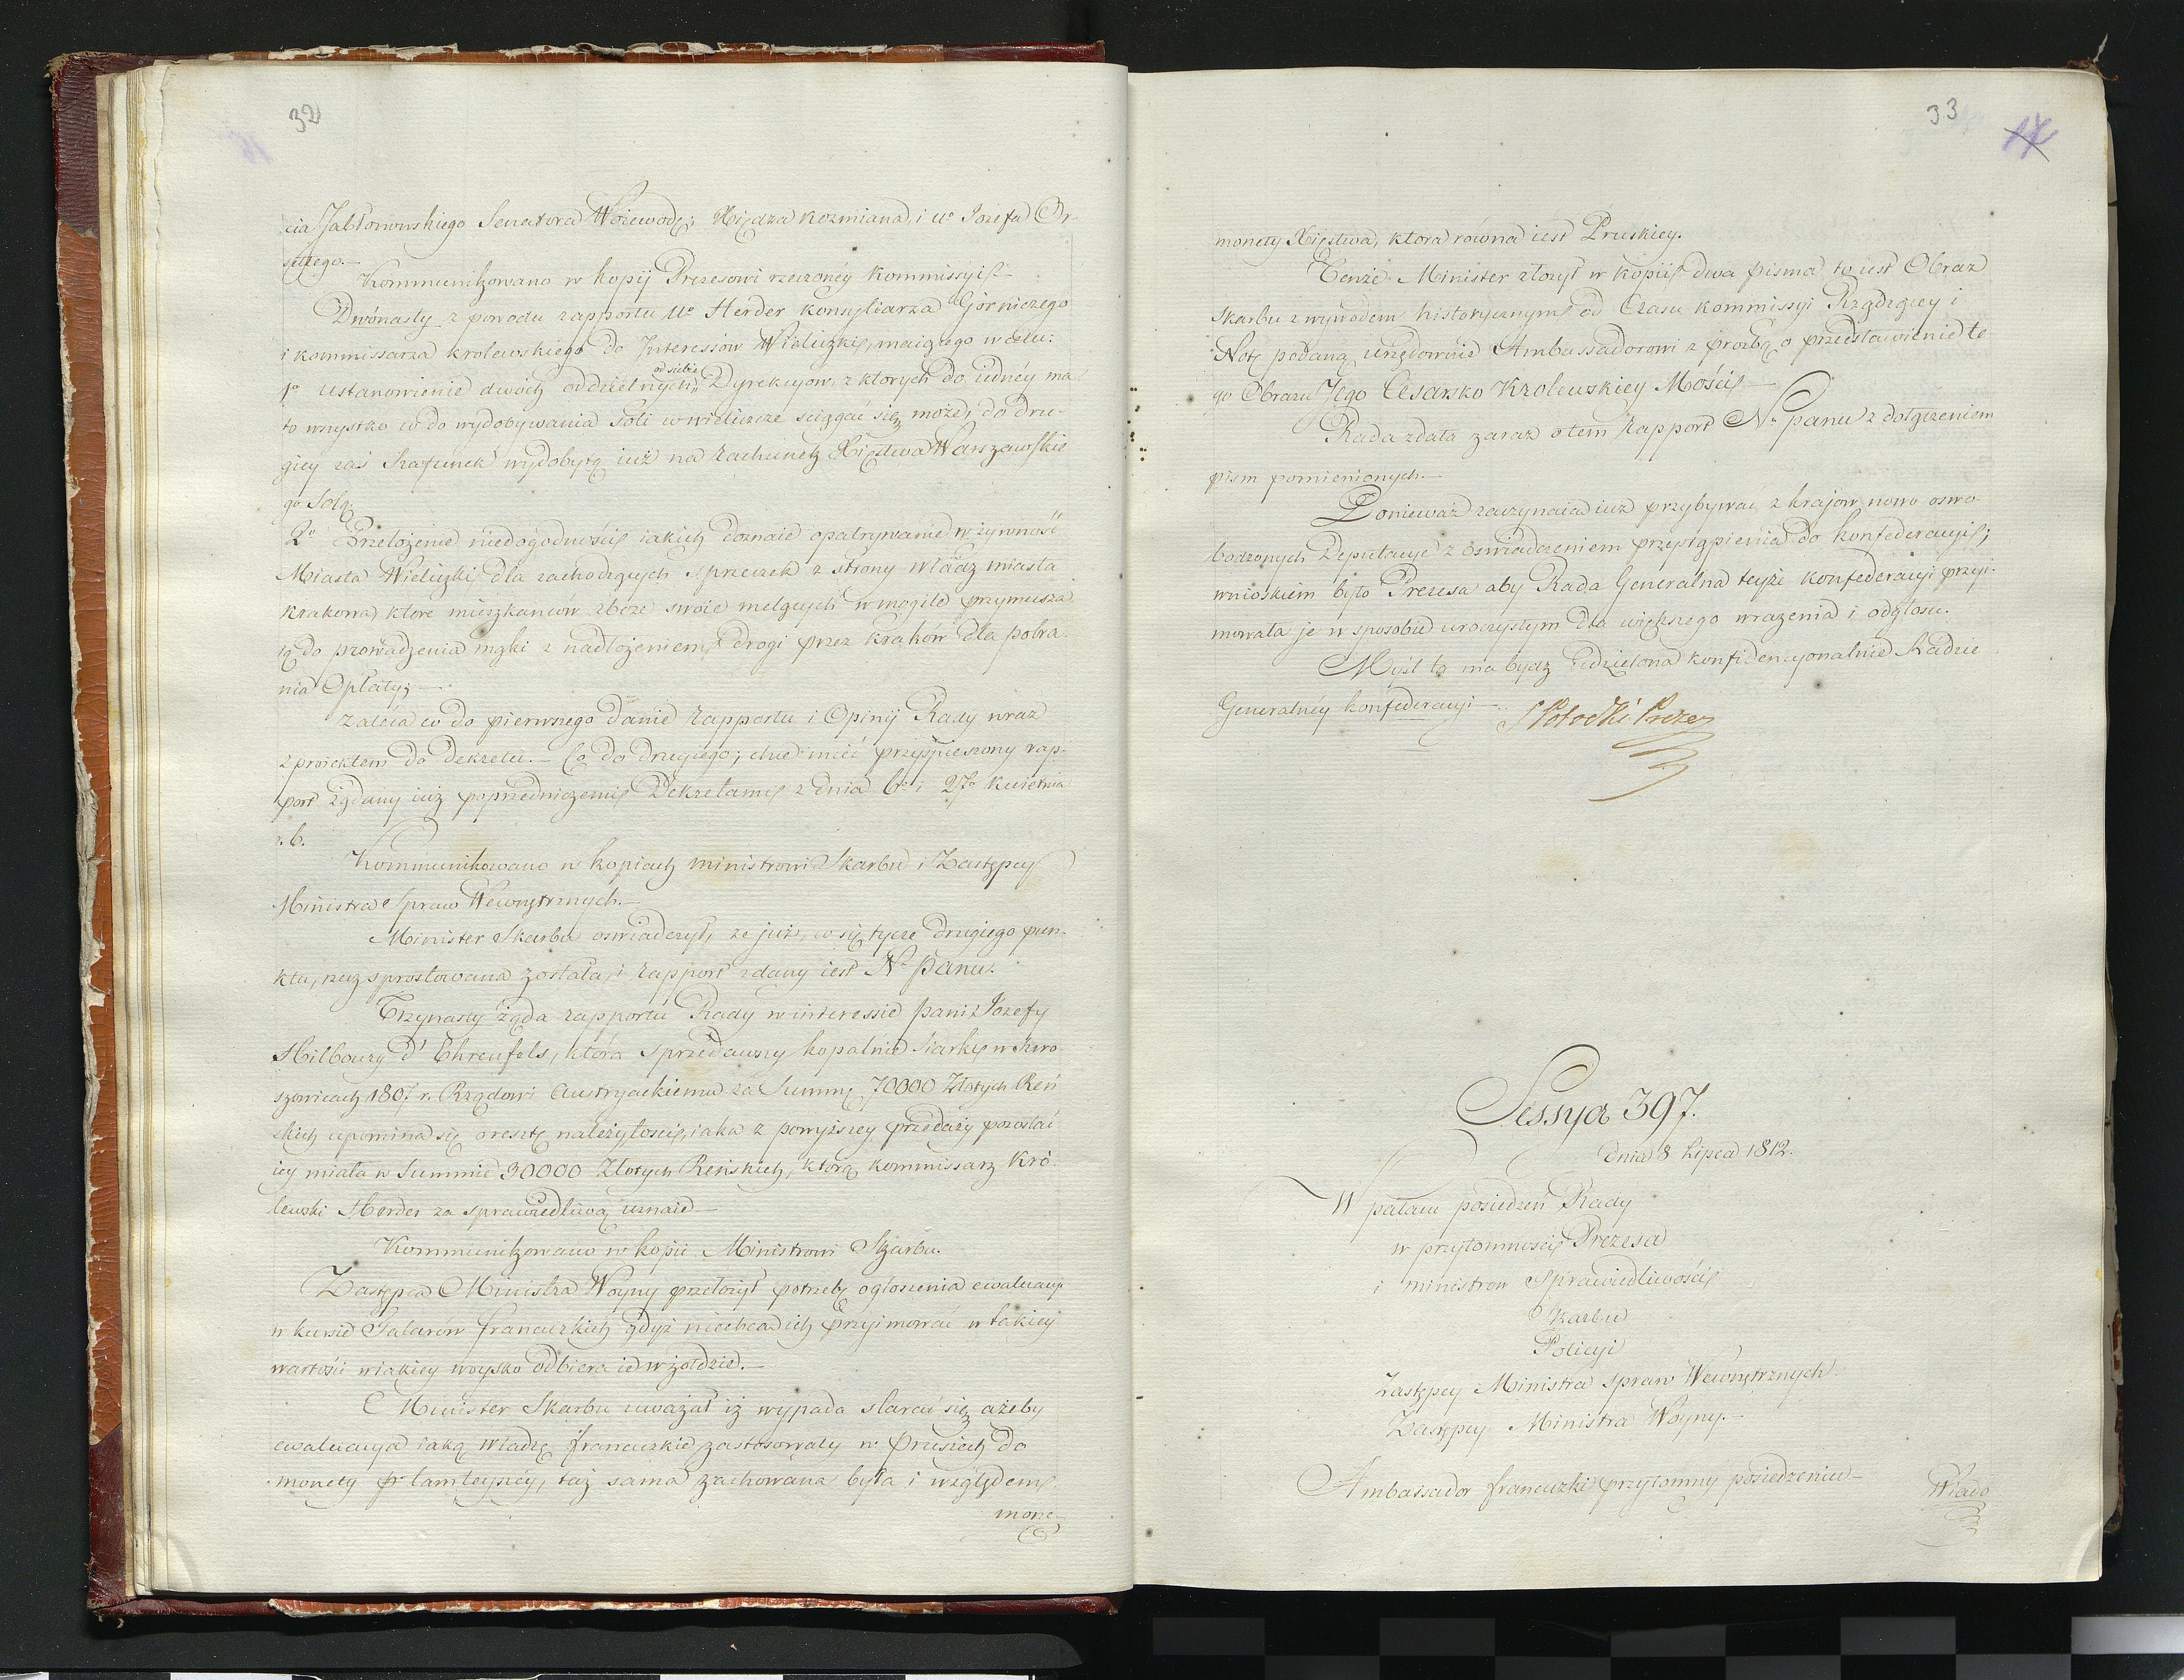 32
cia Jabłonowskiego Senatora Woiewodę; Xiędza Kozmiana, i Ur Jozefa Or-
settego.—
Kommunikowano w kopij Prezesowi rzeczonéy Kommissyi
Dwónasty z powodu rapportu Ur Herder Konsyliarza Górniczego
i kommissarza krolewskiego do Interessow Wieliczki, maiącego w celu:
1o Ustanowienie dwóch oddzielnych od siebie Dyrekcyow, z ktorych do iednéy ma
to wszystko co do wydobywania Soli w Wieliczce sciągać się może, do dru-
giey zaś Szafunek wydobytą iuż na Rachunek Xięstwa Warszawskie
go Solą.
2o Przełożenie niedogodności iakich doznaie opatrywanie w żywność
Miasta Wieliczki dla zachodzących sprzeczek z strony władz miasta
Krakowa, ktore mieszkancow zboże swoie melących w mogile przymusza
ią do prowadzenia mąki z nadłożeniem drogi przez Kraków dla pobra-
nia Opłaty;—
Zaleca co do pierwszego danie Rapportu i Opinij Rady wraz
z proiektem do Dekretu.— Co do drugiego; chce mieć przyspieszony rap-
port żądany iuż poprzedniczemi Dekretami z dnia 6o i 27o Kwietnia
r. b.
Kommunikowano w kopiach Ministrowi Skarbu i Zastępcy
Ministra Spraw Wewnętrznych.—
Minister Skarbu oswiadczył, że już, co się tycze drugiego pun-
ktu, rzecz sprostowana została, i Rapport zdany iest Nr Panu.
Trzynasty żąda rapportu Rady w interessie Pani Jozefy
Hilbourg d'Ehrenfels, która sprzedawszy kopalnie Siarki w Swo-
szowicach 1807 r. Rządowi Austryackiemu za Summę 70000 Złotych Reń
skich upomina się o resztę należytości, iaka z powyższey przedaży pozostać
iey miała w Summie 30000 Złotych Reńskich, którą Kommissarz Kró-
lewski Herder za sprawiedliwą uznaie—
Kommunikowano w kopii Ministrowi Skarbu.
Zastępca Ministra Woyny przełożył potrzebę ogłoszenia ewaluacyi
w kursie Talarow francuzkich gdyż niechcą ich przyimować w takiey
wartości w iakiey woysko odbiera ie w żołdzie.—
Minister Skarbu uważał iż wypada starać się ażeby
ewaluacya iaką władze francuzkie zastosowały w Prusiech do
monety pr tamteyszey, taż sama zachowana była i względem
mone-
33
17
monety Xięstwa, ktora równa iest Pruskiey.
Tenże Minister złożył w kopii dwa pisma to iest Obraz
Skarbu z wywodem historycznym od Czasu Kommissyi Rządzącey i
Notę podaną urzędownie Ambassadorowi z proźbą o przedstawienie te
go Obrazu Jego Cesarsko Krolewskiey Mości—
Rada zdała zaraz o tem Rapport Nr Panu z dołączeniem
pism pomienionych.—
Ponieważ zaczynaia iuż przybywać z kraiow nowo oswo-
bodzonych Deputacye z oswiadczeniem przystąpienia do Konfederacyi;
wnioskiem było Prezesa aby Rada Generalna teyże Konfederacyi przyi-
mowała je w sposobie uroczystym dla większego wrażenia i odgłosu.
Myśl ta ma bydz udzielona konfidencyonalnie Radzie
Generalnéy Konfederacyi—
S Potocki Prezes
Sessya 397.
dnia 8 Lipca 1812.
W pałacu posiedzeń Rady
w przytomności Prezesa
i ministrow Sprawiedliwości
Skarbu
Policyi
Zastępcy Ministra spraw Wewnętrznych
Zastępcy Ministra Woyny.—
Ambassador francuzki przytomny posiedzeniu—
Wiado